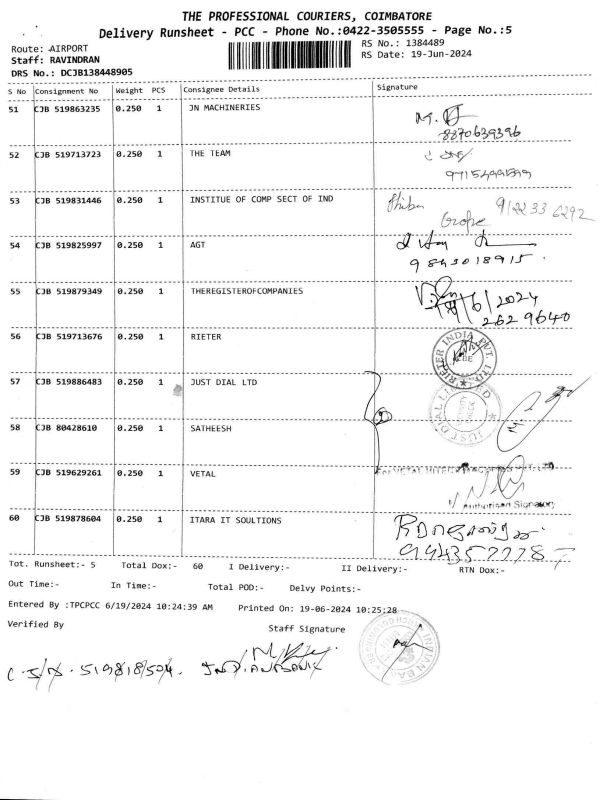 THE PROFESSIONAL COURIERS, COIMBATORE
Delivery Runsheet - PCC - Phone No.:0422-3505555 - Page No.:5
Route: AIRPORT
RS No.: 1384489
Staff: RAVINDRAN
RS Date: 19-Jun-2024
DRS No.: DCJB138448905
S No Consignment No Weight PCS Consignee Details Signature
51 CJB 519863235 0.250 1 JN MACHINERIES
8870639396
52 CJB 519713723 0.250 1 THE TEAM
53 CJB 519831446 0.250 1 INSTITUE OF COMP SECT OF IND
9122 33 6292
54 CJB 519825997 0.250 1 AGT
9843018915
55 CJB 519879349 0.250 1 THEREGISTEROFCOMPANIES
/6/2024
2629640
56 CJB 519713676 0.250 1 RIETER
RIETER INDIA PVT. LTD.
57 CJB 519886483 0.250 1 JUST DIAL LTD
JUST DIAL LIMITED
58 CJB 80428610 0.250 1 SATHEESH
59 CJB 519629261 0.250 1 VETAL
Authorised Signatory
60 CJB 519878604 0.250 1 ITARA IT SOULTIONS
Tot. Runsheet:- 5 Total Dox:- 60 I Delivery:- II Delivery:- RTN Dox:-
Out Time:- In Time:- Total POD:- Delvy Points:-
Entered By :TPCPCC 6/19/2024 10:24:39 AM Printed On: 19-06-2024 10:25:28
Verified By Staff Signature
519818504. INDIAN BANK
INDIAN BANK